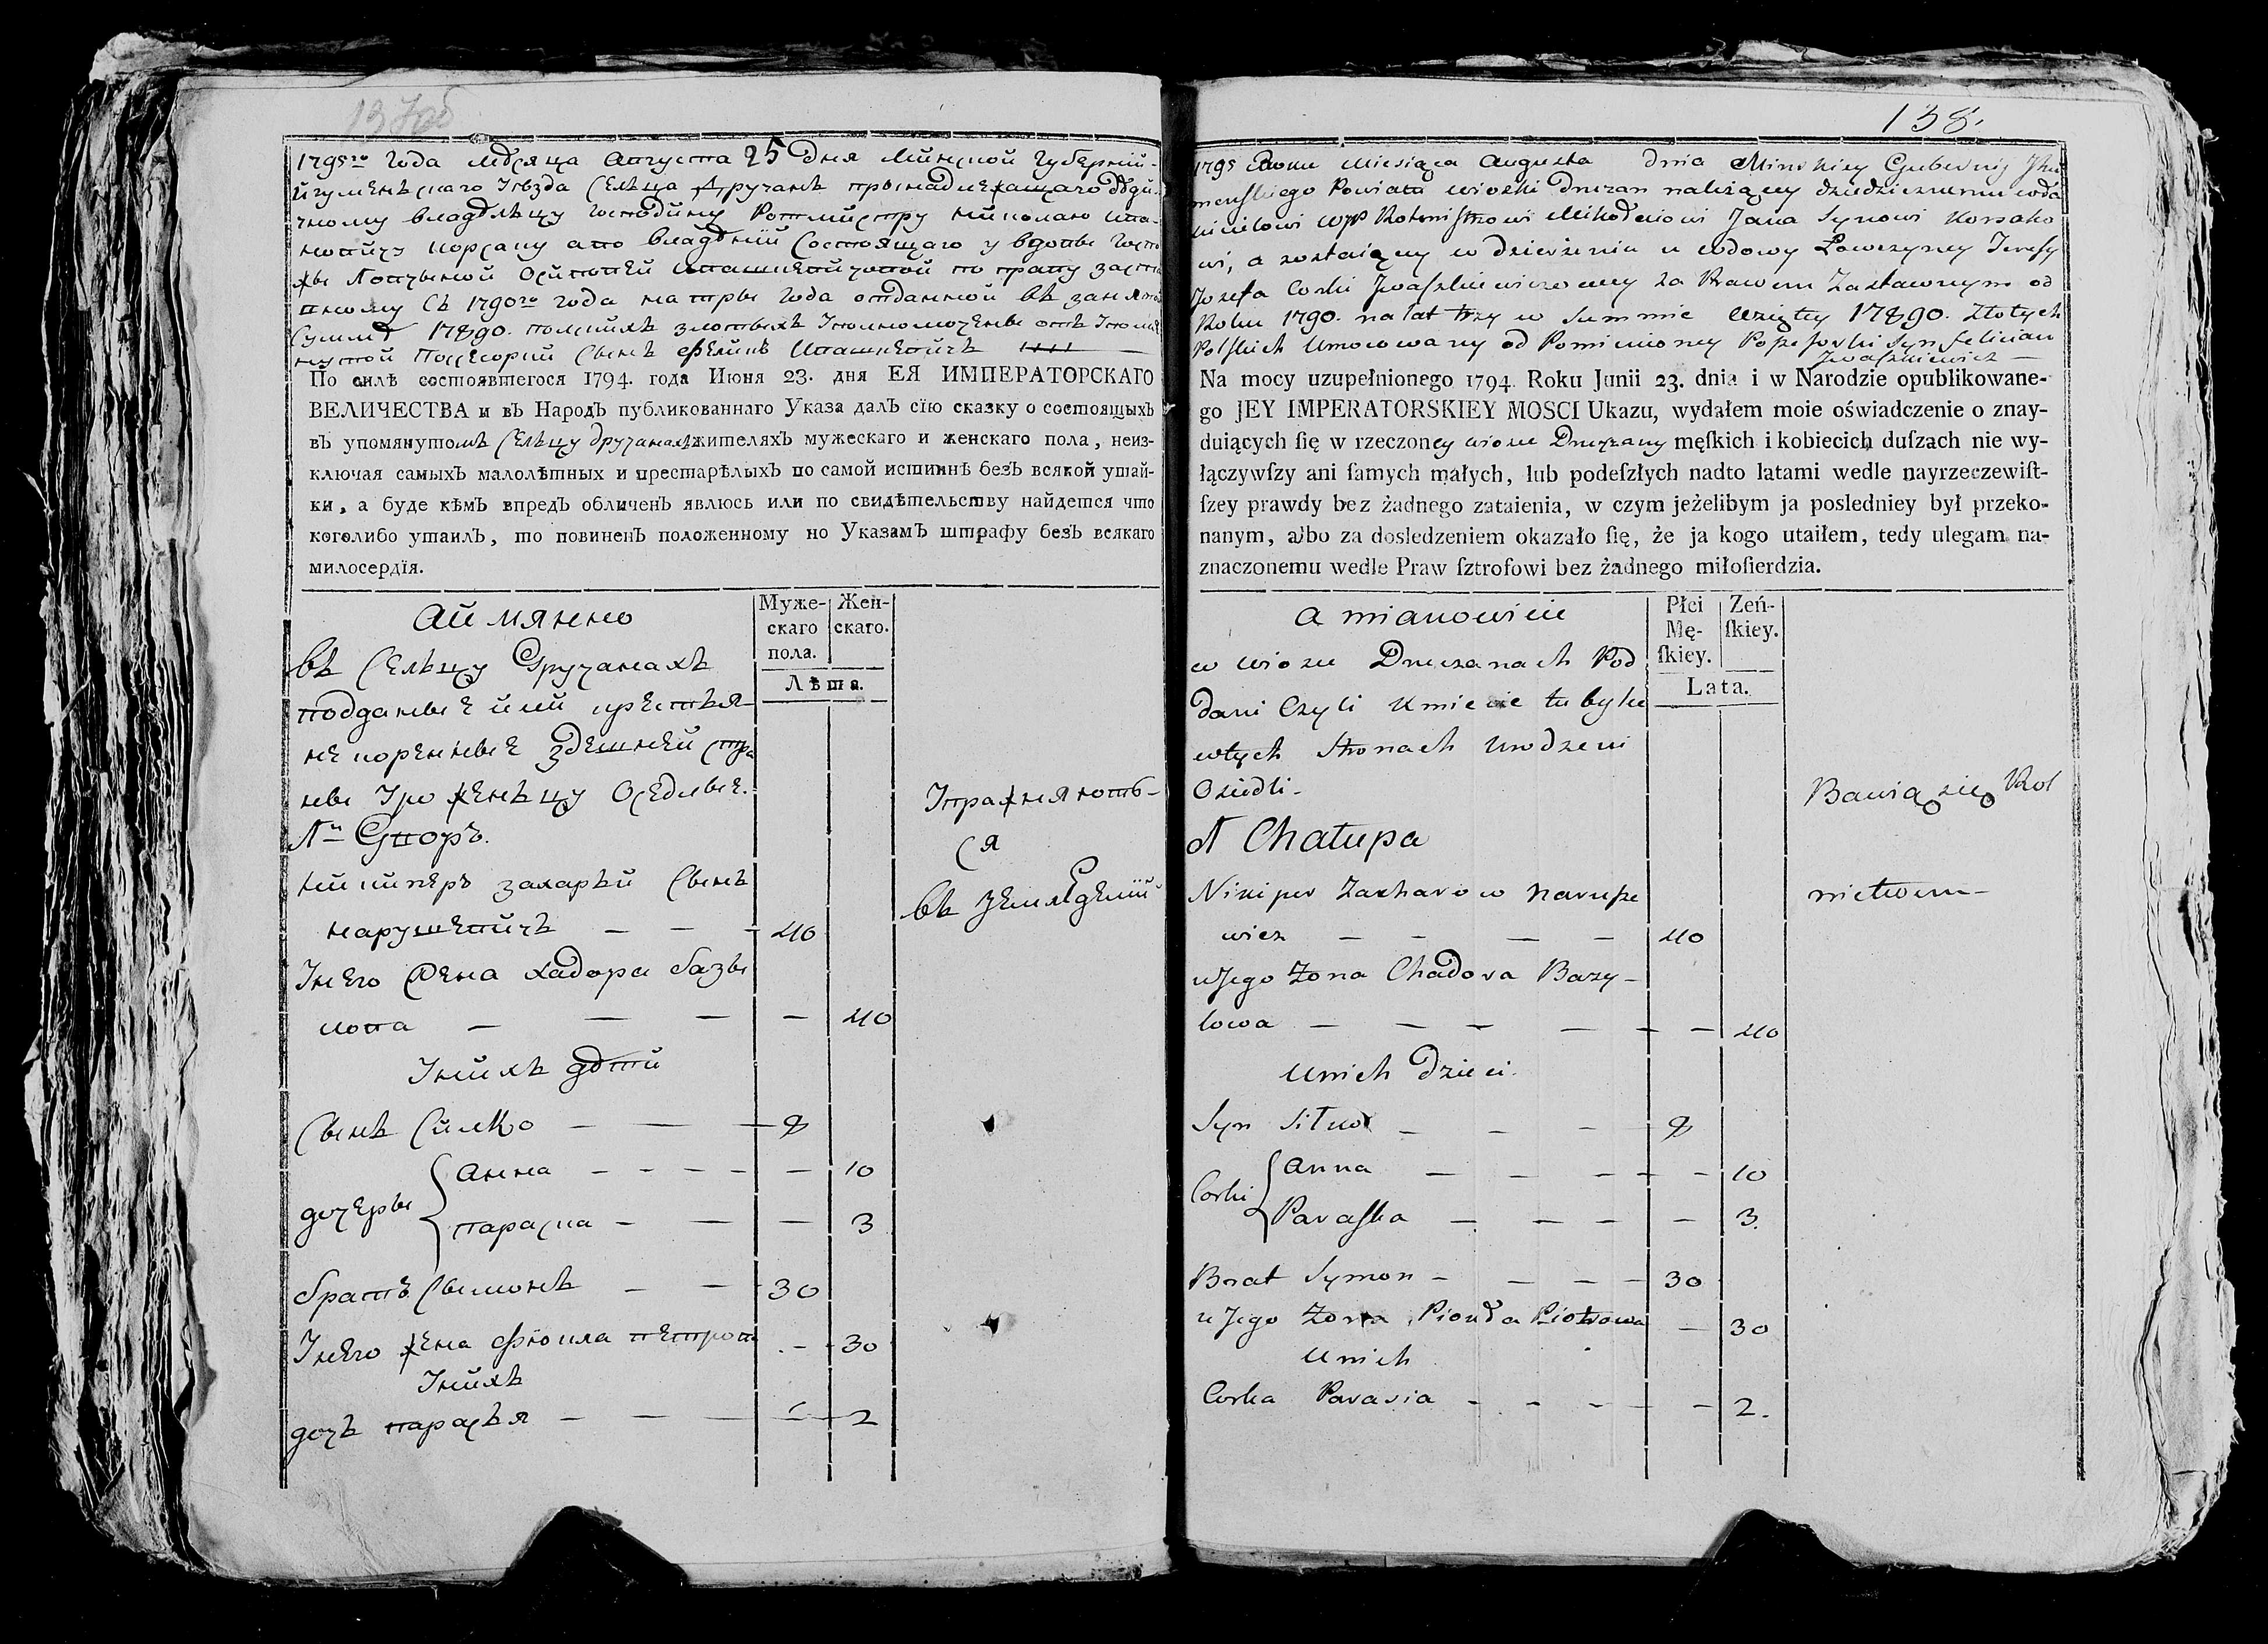 137об
1795го Года мѣсяца Августа 25 Дня Минской Губерній
Игуменьскаго Уѣзда Сельца Дручанъ принадлежащаго дѣди-
чному владѣльцу Господину Ротмистру Николаю Ива-
новичу Корсаку а во владѣніи состоящаго у вдовы Госпо
жы Ловчыной Осиповей Ивашкевичовой по праву заста
вному Съ 1790го года на тры Года отданной въ заня
Суммѣ 17890. польскихъ злотыхъ Уполномоченый отъ Упомя
нутой Поссесорки Сынъ Феликъ Ивашкевичъ
По силѣ состоявшегося 1794. года Июня 23. дня ЕЯ ИМПЕРАТОРСКАГО
ВЕЛИЧЕСТВА и въ Народъ публикованнаго Указа далъ сїю сказку о состоящыхъ
въ упомянутомъ Сельцу Дручанахъ жителяхъ мужескаго и женскаго пола, неиз-
ключая самыхъ малолѣтныхъ и престарѣлыхъ по самой истиннѣ безъ всякой утай-
ки, а буде кѣмъ впредъ обличенъ явлюсь или по свидѣтельству найдется что
коголибо утаилъ, то повиненъ положенному по Указамъ штрафу безъ всякаго
милосердїя.
Аимянно
Муже-
скаго
пола.
Жен-
скаго.
Лѣта.
въ Сельцу Дручанахъ
подданые или кресть я-
не коренные здешней стра
ны Урожденьцу Оседлые.
№ Дворъ.
Упражняють-
ся
въ земледелій
Никиперъ Захарьй Сынъ
Нарушевичъ — — — 40
Унего Жена Хадора базы
лова — — — — 40
Унихъ дѣти
Сынъ Силко — — — 8
дочеры
Анна — — — — — 10
параска — — — 3
братъ Сымонъ — — 30
Унего жена Фіокла петрова — 30
Унихъ
дочь парасья — — — — 2
138.
1795 Roku Miesiąca Augusta dnia Minskiey Gubernij Jhu
menskiego Powiatu wioski Druczan należącey dziedzicznemu wła
scicielowi WJP Rotmistrowi Mikołaiowi Jana Synowi Korsako
wi, a zostaiącey w dzierżeniu u wdowy Łowczyney Teresy
Jozefa Corki Jwaszkiewiczowey za Prawem Zastawnym od
Roku 1790. na lat trzy w Summie wziętey 17890. Złotych
Polskich Umocowany od Pomienioney Possesorki Syn Felician
Jwaszkiewicz —
Na mocy uzupełnionego 1794. Roku Junii 23. dnia i w Narodzie opublikowane-
go JEY IMPERATORSKIEY MOSCI Ukazu, wydałem moie oświadczenie o znay-
duiących ſię w rzeczoney wiosce Druczany męſkich i kobiecich duſzach nie wy-
łączywſzy ani ſamych małych, lub podeſzłych nadto latami wedle nayrzeczewiſt-
ſzey prawdy bez żadnego zataienia, w czym jeżelibym ja posledniey był przeko-
nanym, albo za dosledzeniem okazało ſię, że ja kogo utaiłem, tedy ulegam na-
znaczonemu wedle Praw ſztrofowi bez żadnego miłoſierdzia.
a mianowicie
Płci
Mę-
ſkiey.
Zeń-
ſkiey.
Lata.
w wiosce Druczanach Pod
dani Czyli Kmiecie tubylce
wtych Stronach Urodzeni
Osiedli —
N Chałupa
Bawią się Rol
nictwem —
Nikiper Zacharow Narusze
wicz — — — — 40
uJego Żona Chadora Bazy-
lowa — — — — — — 40
Unich Dzieci.
Syn Siłko — — — 8
Corki
Anna — — — — — 10
Paraska — — — — 3.
Brat Symon — — — — 30
uJego Żona Piokła Piotrowa — 30
Unich
Corka Parasia — — — — 2.